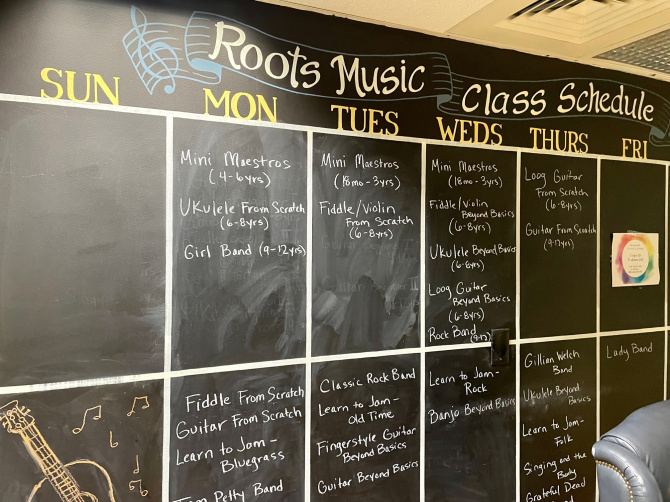 Roots Music Class Schedule
SUN MON TUES WEDS THURS FRI
Mini Maestros
(4-6yrs)
UKulele From Scratch
(6-8yrs)
Girl Band (9-12yrs)
Mini Maestros
(18mo-3yrs)
Fiddle/Violin
From Scratch
(6-8yrs)
Mini Maestros
(18mo-3yrs)
Fiddle/Violin
Beyond Basics
(6-8yrs)
Ukulele Beyond Basics
(6-8yrs)
Loog Guitar
Beyond Basics
(6-8yrs)
Rock Band (9-12)
Loog Guitar
From Scratch
(6-8yrs)
Guitar From Scratch
(9-12yrs)
Fiddle From Scratch
Guitar From Scratch
Learn to Jam-
Bluegrass
Tom Petty Band
Classic Rock Band
Learn to Jam-
Old Time
Fingerstyle Guitar
Beyond Basics
Guitar Beyond Basics
Learn to Jam-
Rock
Banjo Beyond Basics
Gillian Welch
Band
Ukulele Beyond
Basics
Learn to Jam-
Folk
Singing and the
Body
Grateful Dead
Lady Band